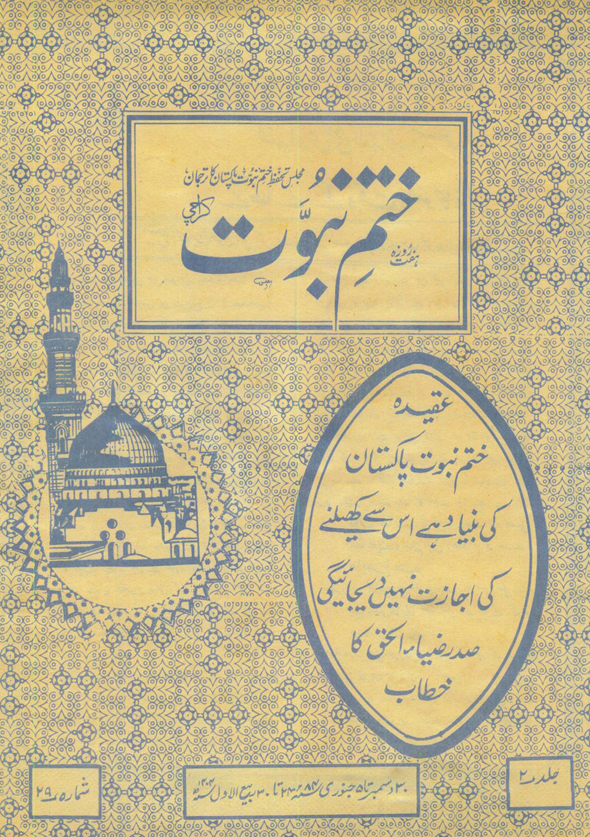 مجلس تحفظ ختم نبوت پاکستان کا ترجمان
ہفت روزہ
ختمِ نبوّت
کراچی
عقیدہ
ختم نبوت پاکستان
کی بنیاد ہے اس سے کھیلنے
کی اجازت نہیں دیجائیگی
صدر ضیاء الحق کا
خطاب
جلد ۲
۳۰ دسمبر تا ۵ جنوری ۸۴ ۲۴ تا ۳۰ ربیع الاول ۱۴۰۴
شمارہ ۲۹